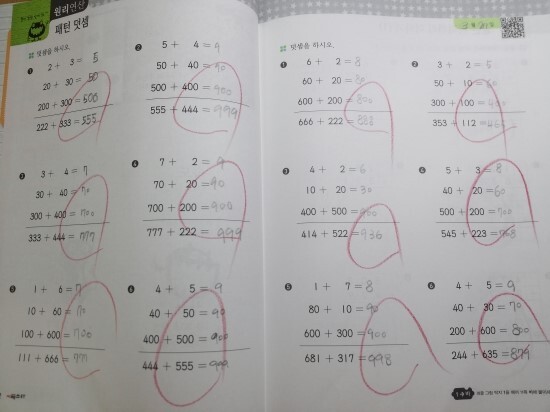 원리연산
패턴 덧셈
덧셈을 하시오.
❶
2 + 3 = 5
20 + 30 = 50
200 + 300 = 500
222 + 333 = 555
❷
5 + 4 = 9
50 + 40 = 90
500 + 400 = 900
555 + 444 = 999
❸
3 + 4 = 7
30 + 40 = 70
300 + 400 = 700
333 + 444 = 777
❹
7 + 2 = 9
70 + 20 = 90
700 + 200 = 900
777 + 222 = 999
❺
1 + 6 = 7
10 + 60 = 70
100 + 600 = 700
111 + 666 = 777
❻
4 + 5 = 9
40 + 50 = 90
400 + 500 = 900
444 + 555 = 999
덧셈을 하시오.
❶
6 + 2 = 8
60 + 20 = 80
600 + 200 = 800
666 + 222 = 888
❷
3 + 2 = 5
50 + 10 = 60
300 + 100 = 400
353 + 112 = 465
❸
4 + 2 = 6
10 + 20 = 30
400 + 500 = 900
414 + 522 = 936
❹
5 + 3 = 8
40 + 20 = 60
500 + 200 = 700
545 + 223 = 768
❺
1 + 7 = 8
80 + 10 = 90
600 + 300 = 900
681 + 317 = 998
❻
4 + 5 = 9
40 + 30 = 70
200 + 600 = 800
244 + 635 = 879